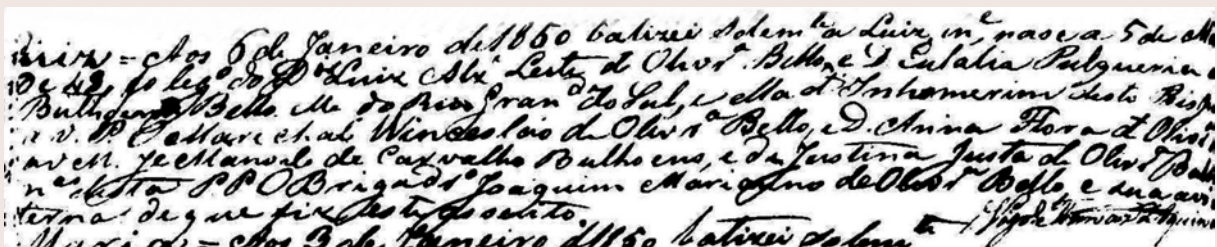 Luiz = Aos 6 de Janeiro de 1850 batizei solemte a Luiz, ine, nasc a 5 de
de 49, fo lego do Dr Luiz Alx Leite d' Olivra Bello, e D. Eulalia Pulqueria
Bulhoens Bello elle do Rio Grande do Sul, e ella d' Inhomerim deste Bispo
a v. P. o Marechal Winceslaio de Olivra Bello, e D. Anna Flora d' Olivra
av M. Je Manoel de Carvalho Bulhoens, e da Justina Justa de Olivra
na desta PP O Brigadro Joaquim Marianno de Olivra Bello, e sua avó
terna: de que fiz este assento.
Maria = Aos 3 de Janeiro d' 1850 batizei solemte